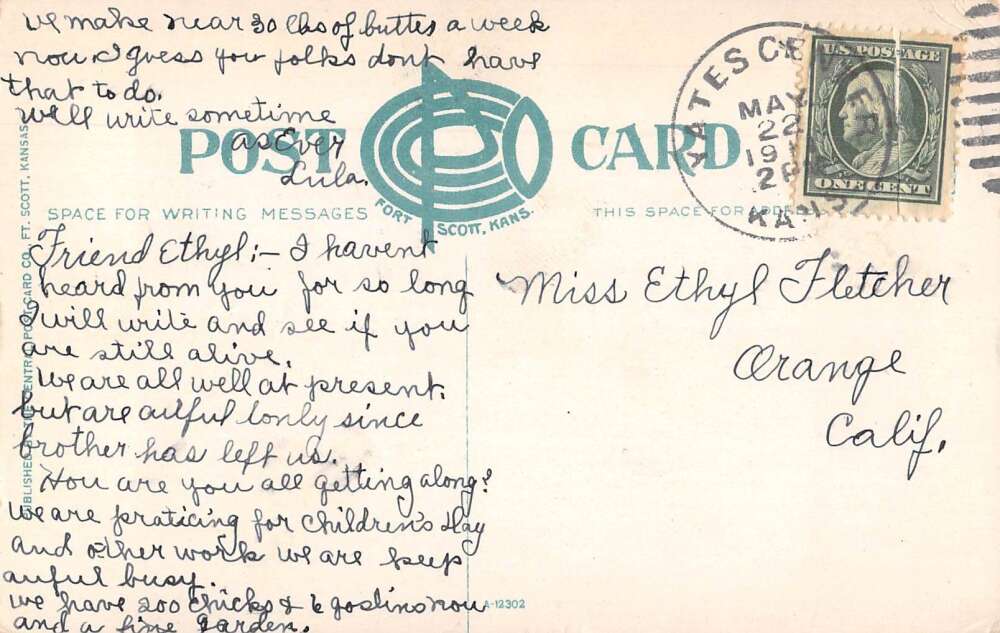 we make near 30 lbs of butter a week
now I guess you folks dont have
that to do.
well write sometime
as Ever
Lula.
POST CARD
FORT SCOTT, KANS.
SPACE FOR WRITING MESSAGES
THIS SPACE FOR
YATES CENTER
MAY
22
191
KANS
U.S. POSTAGE
ONE CENT
Friend Ethyl:– I havent
heard from you for so long
I will write and see if you
are still alive.
We are all well at present.
but are aulful lonly since
brother has left us.
How are you all getting along?
We are praticing for Children's Day
and other work we are keep
auful busy.
we have 200 chicks & 6 goslins now
and a fine garden.
Miss Ethyl Fletcher
Orange
Calif.
PUBLISHED BY THE CENTRAL POST CARD CO., FT. SCOTT, KANSAS
A-12302